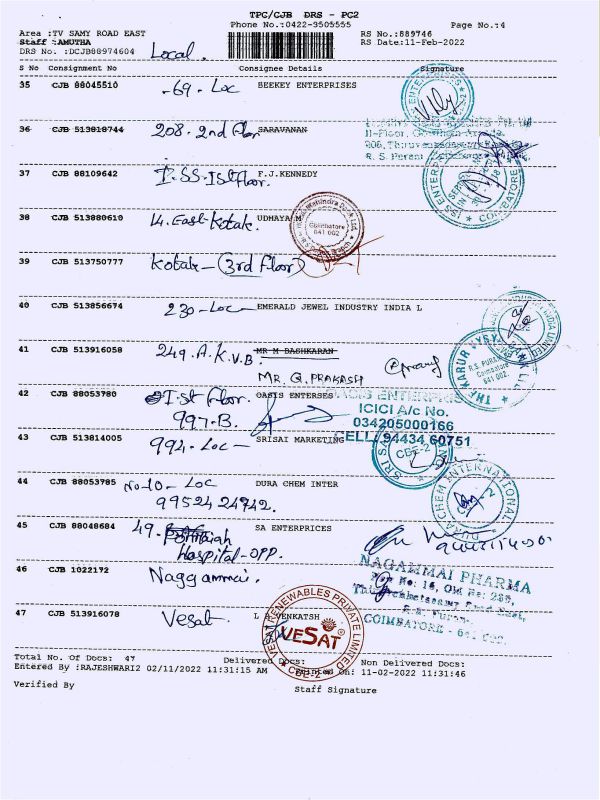 TPC/CJB DRS - PC2
Phone No.:0422-3505555
Page No.:4
Area :TV SAMY ROAD EAST
RS No.:889746
Staff :AMUTHA
RS Date:11-Feb-2022
DRS No. :DCJB88974604
Local.
S No Consignment No Consignee Details Signature
35 CJB 88045510 -69.- Loc BEEKEY ENTERPRISES
36 CJB 513818744 208.- 2nd Floor SARAVANAN
II-Floor,
R. S. Puram
37 CJB 88109642 I.SS.Ist floor. F.J.KENNEDY
COIMBATORE
38 CJB 513880610 14. East-Kotak. UDHAYA M
Coimbatore
641 002
39 CJB 513750777 Kotak-(3rd floor)
40 CJB 513856674 230-Loc- EMERALD JEWEL INDUSTRY INDIA L
41 CJB 513916058 249.A.K.V.B. MR M BASHKARAN
MR. G. PRAKASH
THE KARUR VYSYA
Coimbatore
641 002.
42 CJB 88053780 Ist floor. OASIS ENTERSES
997-B.
OASIS ENTERPRISES
ICICI A/c No.
034205000166
CELL: 94434 60751
43 CJB 513814005 994.-Loc- SRISAI MARKETING
CBE-2
44 CJB 88053785 No-10-Loc DURA CHEM INTER
99524 24942.
DURA CHEM INTERNATIONAL
45 CJB 88048684 49. SA ENTERPRICES
Hospital-OPP.
46 CJB 1022172 Naggammai.
NAGAMMAI PHARMA
COIMBATORE - 641 002.
47 CJB 513916078 Vesat. L A VENKATSH
VESAT RENEWABLES PRIVATE LIMITED
VESAT ®
CBE-2
Total No. Of Docs: 47 Delivered Docs: Non Delivered Docs:
Entered By :RAJESHWARI2 02/11/2022 11:31:15 AM Printed On: 11-02-2022 11:31:46
Verified By
Staff Signature